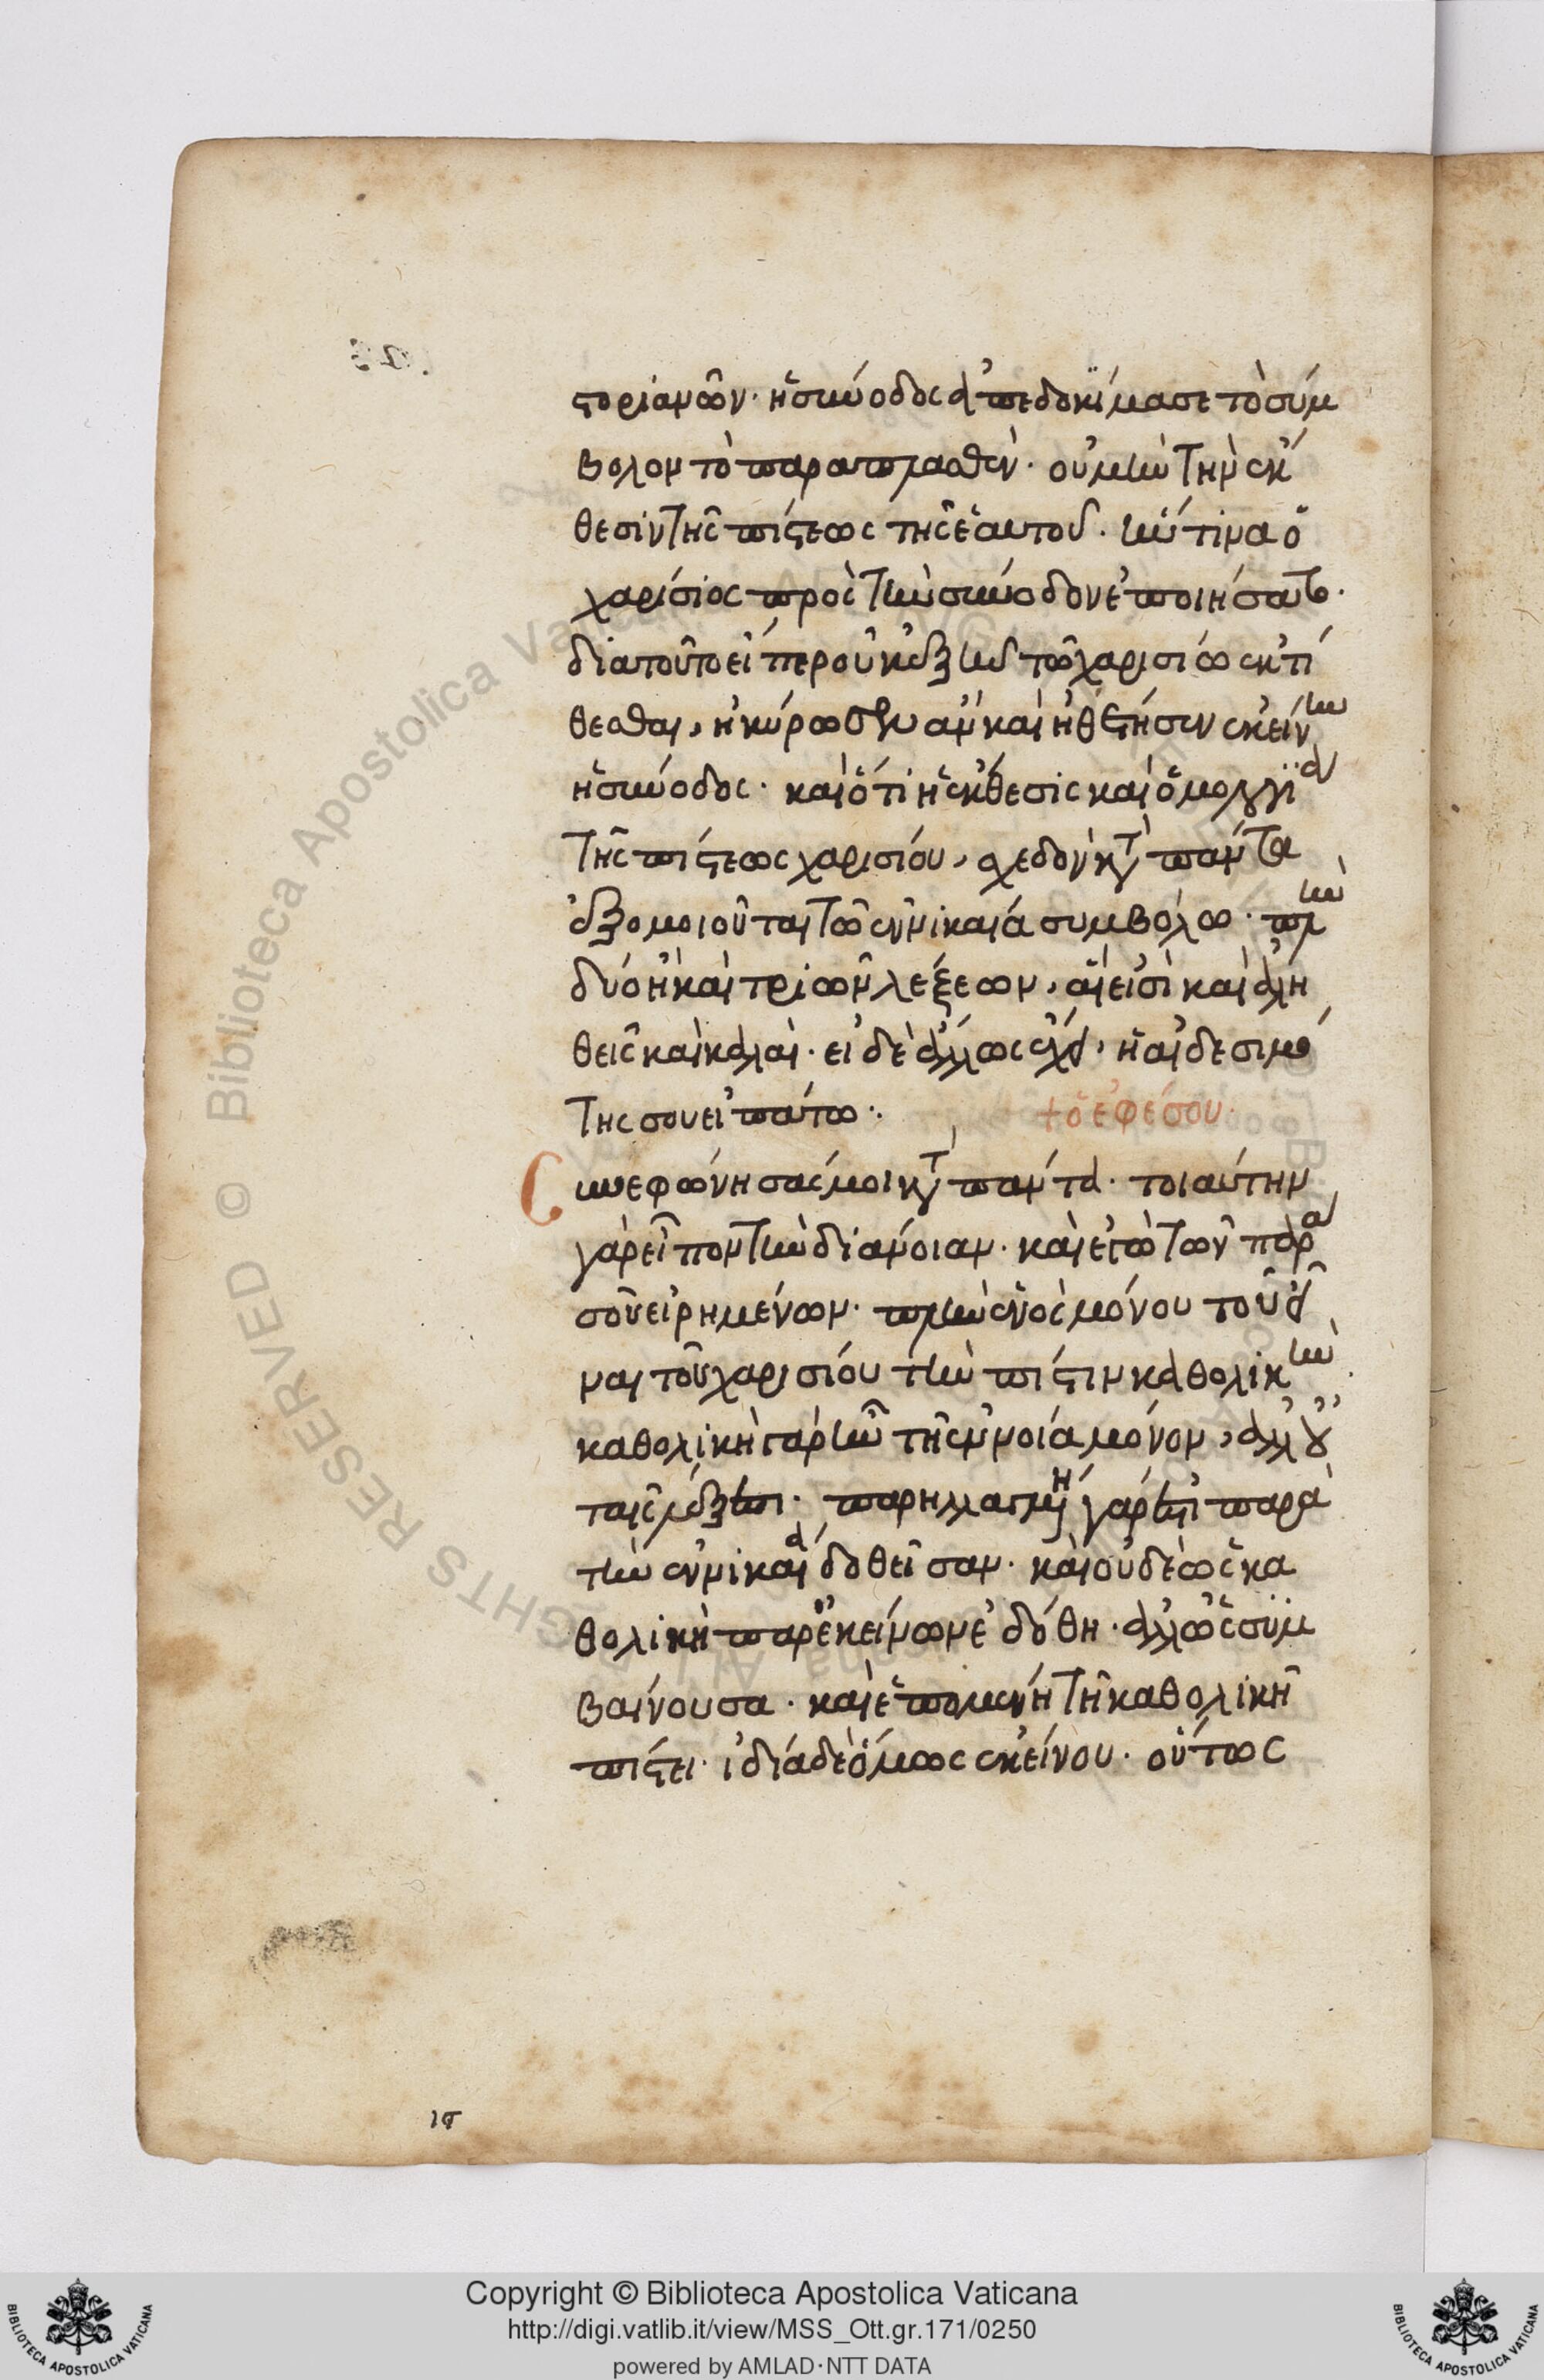 στοριανῶν· ἡ σύνοδος ἀπεδοκίμασε τὸ σύμ
βολον τὸ παραπλασθέν· οὐ μὴν τὴν ἔκ
θεσιν τῆς πίστεως τῆς ἑαυτοῦ· ἥν τινα ὁ
χαρίσιος πρὸς τὴν σύνοδον ἐποιήσατο·
διατοῦτο εἴπερ οὐκ ἐξῆν τῶ χαρισίω ἐκτί
θεσθαι, ἠκύρωσεν ἂν καὶ ἠθέτησεν ἐκείνην
ἡ σύνοδος· καὶ ὅτι ἡ ἔκθεσις καὶ ὁμολογία
τῆς πίστεως χαρισίου, σχεδὸν κατὰ πάντα
ἐξομοιοῦται τῶ ἐν νικαία συμβόλω· πλὴν
δύο ἢ καὶ τριῶν λέξεων, αἵ εἰσι καὶ ἀλη
θεῖς καὶ καλαί· εἰ δὲ ἄλλως ἔχει, ἡ αἰδεσιμό
της σου εἰπάτω:
+ ὁ ἐφέσου·
Συνεφώνησάς μοι κατὰ πάντα· τοιαύτην
γὰρ εἶπον τὴν διάνοιαν· καὶ ἐπὶ τῶν παρὰ
σοῦ εἰρημένων· πλὴν ἑνὸς μόνου τοῦ εἶ
ναι τοῦ χαρισίου τὴν πίστιν καθολικὴν·
καθολικὴ γὰρ ἦν τῆ ἐννοία μόνον, ἀλλ' οὐ
ταῖς λέξεσι· παρηλλαγμένη γάρ ἐστι παρὰ
τὴν ἐν νικαία δοθεῖσαν· καὶ οὐδὲ ὡς κα
θολικὴ παρ' ἐκείνων ἐδόθη· ἀλλ' ὡς συμ
βαίνουσα· καὶ ἑπομένη τῆ καθολικῆ
πίστει· ἰδία δὲ ὅμως ἐκείνου· οὕτως
ις
Copyright © Biblioteca Apostolica Vaticana
http://digi.vatlib.it/view/MSS_Ott.gr.171/0250
powered by AMLAD·NTT DATA